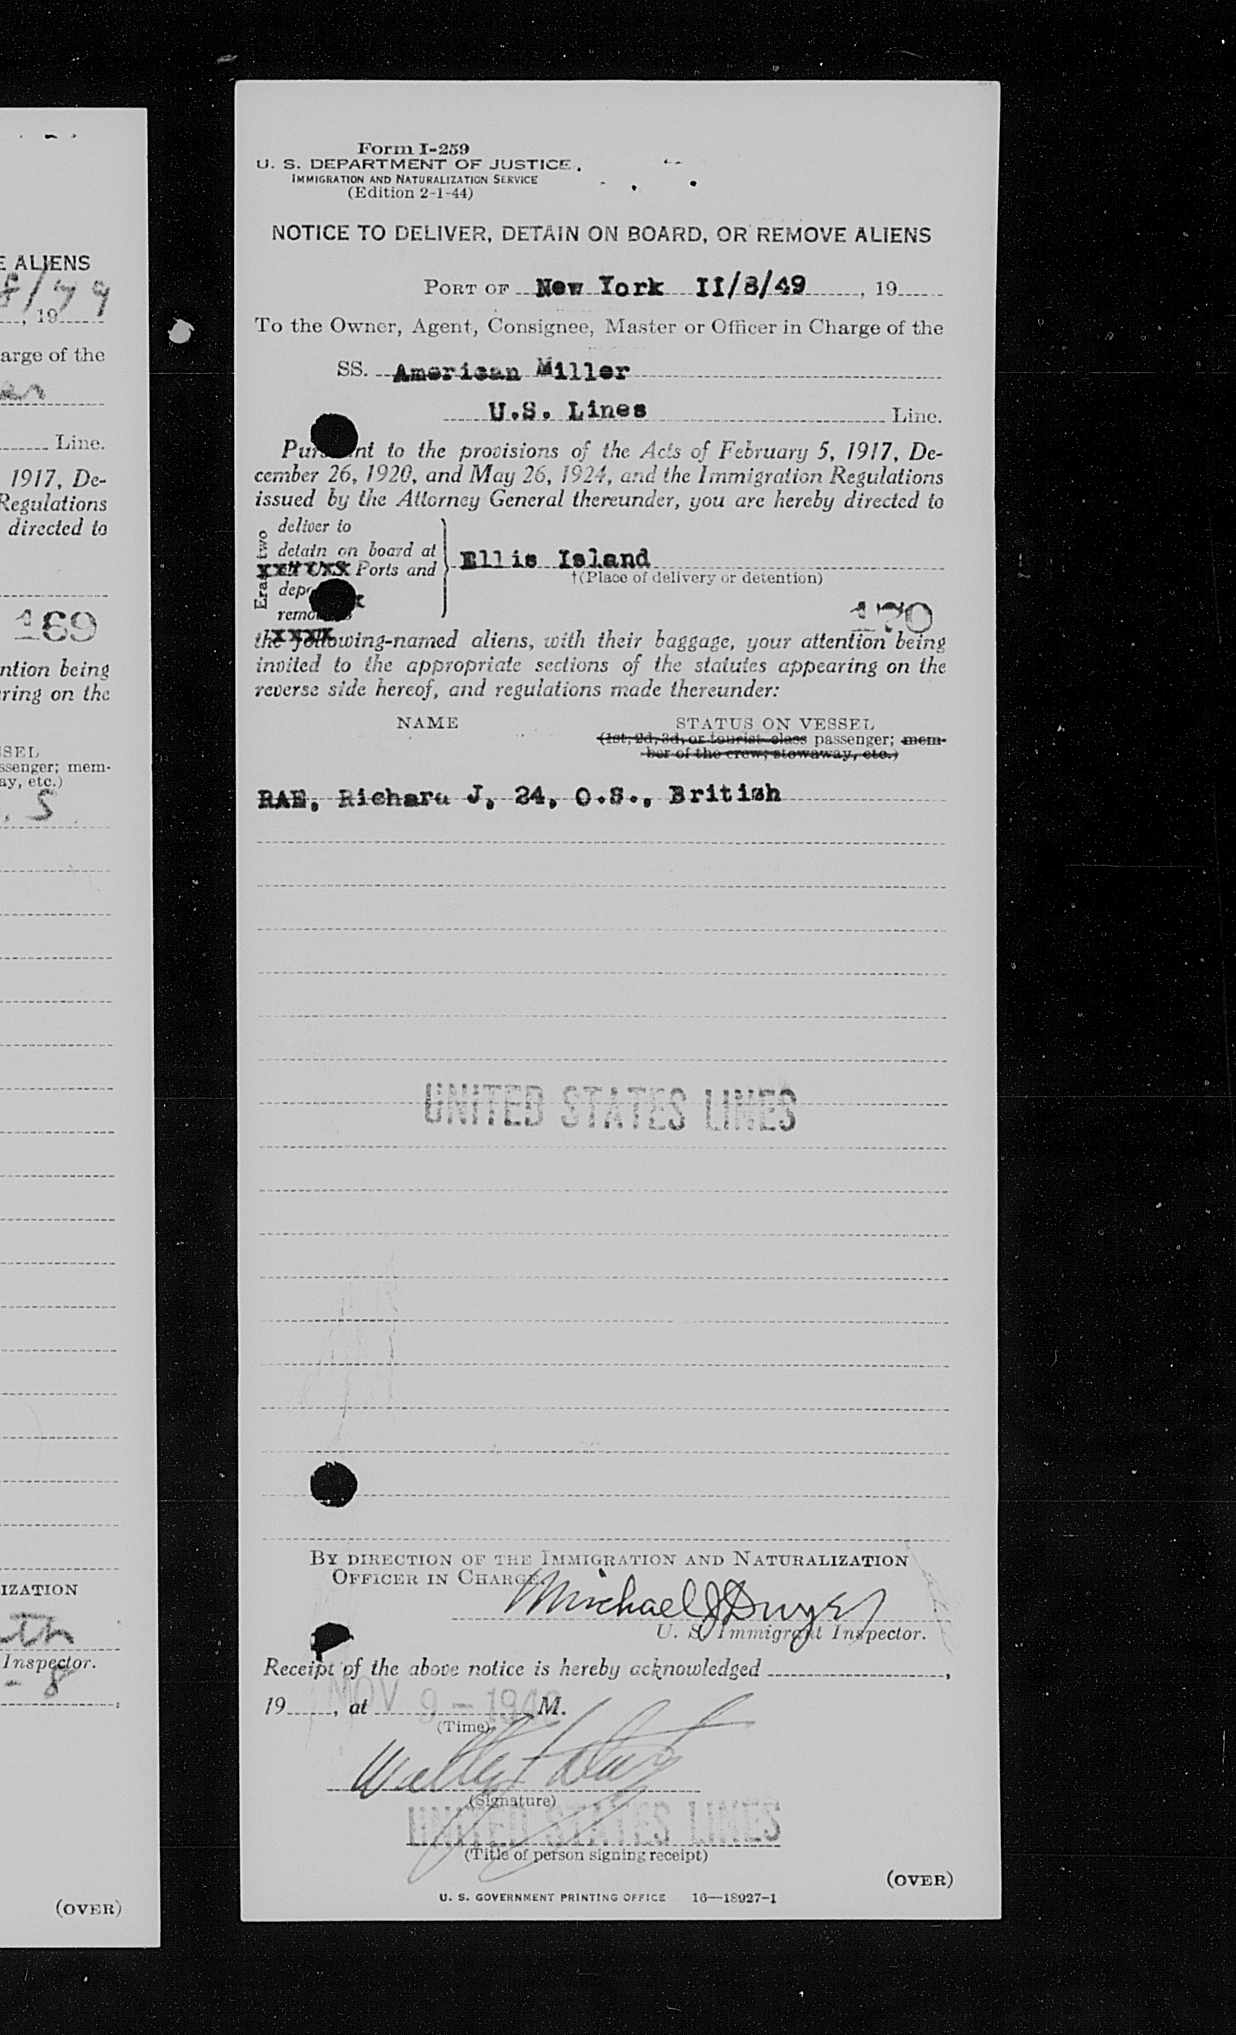 E ALIENS
8/79
, 19
arge of the
Line.
1917, De-
Regulations
directed to
169
ntion being
ring on the
SSEL
ssenger; mem-
ay, etc.)
. S
IZATION
Inspector.
- 8
(OVER)
Form I-259
U. S. DEPARTMENT OF JUSTICE
IMMIGRATION AND NATURALIZATION SERVICE
(Edition 2-1-44)
NOTICE TO DELIVER, DETAIN ON BOARD, OR REMOVE ALIENS
PORT OF New York II/8/49, 19
To the Owner, Agent, Consignee, Master or Officer in Charge of the
SS. American Miller
U.S. Lines Line.
Pursuant to the provisions of the Acts of February 5, 1917, De-
cember 26, 1920, and May 26, 1924, and the Immigration Regulations
issued by the Attorney General thereunder, you are hereby directed to
Erase two
deliver to
detain on board at
Ports and
remove
Ellis Island
†(Place of delivery or detention)
170
the following-named aliens, with their baggage, your attention being
invited to the appropriate sections of the statutes appearing on the
reverse side hereof, and regulations made thereunder:
NAME STATUS ON VESSEL
(1st, 2d, 3d, or tourist class passenger; mem-
ber of the crew; stowaway, etc.)
RAE, Richard J, 24, O.S., British
UNITED STATES LINES
BY DIRECTION OF THE IMMIGRATION AND NATURALIZATION
OFFICER IN CHARGE.
Michael J Dwyer
U. S. Immigrant Inspector.
Receipt of the above notice is hereby acknowledged ,
19 , at M.
NOV 9 - 1949
(Time)
(Signature)
UNITED STATES LINES
(Title of person signing receipt)
(OVER)
U. S. GOVERNMENT PRINTING OFFICE 16—18927-1